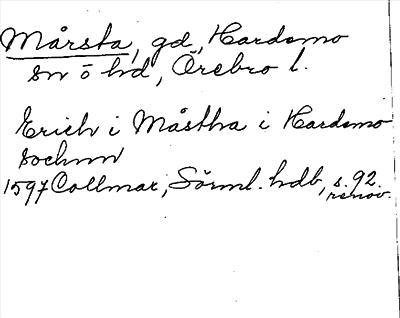 Mårsta, gd, Hardemo
sn o hd, Örebro l.
Erich i Måstha i Hardemo
sochnn
1597 Collmar, Sörml. hdb, s. 92.
renov.